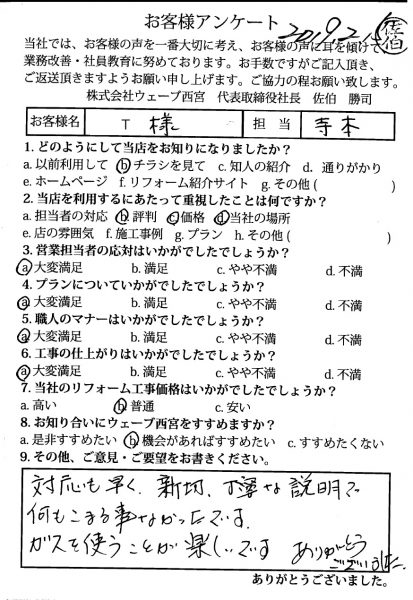 お客様アンケート 佐伯
当社では、お客様の声を一番大切に考え、お客様の声に耳を傾けて
業務改善・社員教育に努めております。お手数ですがご記入頂き、
ご返送頂きますようお願い申し上げます。ご協力の程お願い致します。
株式会社ウェーブ西宮 代表取締役社長 佐伯 勝司
お客様名 T 様 担当 寺本
1. どのようにして当店をお知りになりましたか?
a. 以前利用して b. チラシを見て c. 知人の紹介 d. 通りがかり
e. ホームページ f. リフォーム紹介サイト g. その他( )
2. 当店を利用するにあたって重視したことは何ですか?
a. 担当者の対応 b. 評判 c. 価格 d. 当社の場所
e. 店の雰囲気 f. 施工事例 g. プラン h. その他( )
3. 営業担当者の応対はいかがでしたでしょうか?
a. 大変満足 b. 満足 c. やや不満 d. 不満
4. プランについていかがでしたでしょうか?
a. 大変満足 b. 満足 c. やや不満 d. 不満
5. 職人のマナーはいかがでしたでしょうか?
a. 大変満足 b. 満足 c. やや不満 d. 不満
6. 工事の仕上がりはいかがでしたでしょうか?
a. 大変満足 b. 満足 c. やや不満 d. 不満
7. 当社のリフォーム工事価格はいかがでしたでしょうか?
a. 高い b. 普通 c. 安い
8. お知り合いにウェーブ西宮をすすめますか?
a. 是非すすめたい b. 機会があればすすめたい c. すすめたくない
9. その他、ご意見・ご要望をお書きください。
対応も早く、親切、丁寧な説明で
何もこまる事なかったです。
ガスを使うことが楽しいです ありがとう
ございました。
ありがとうございました。